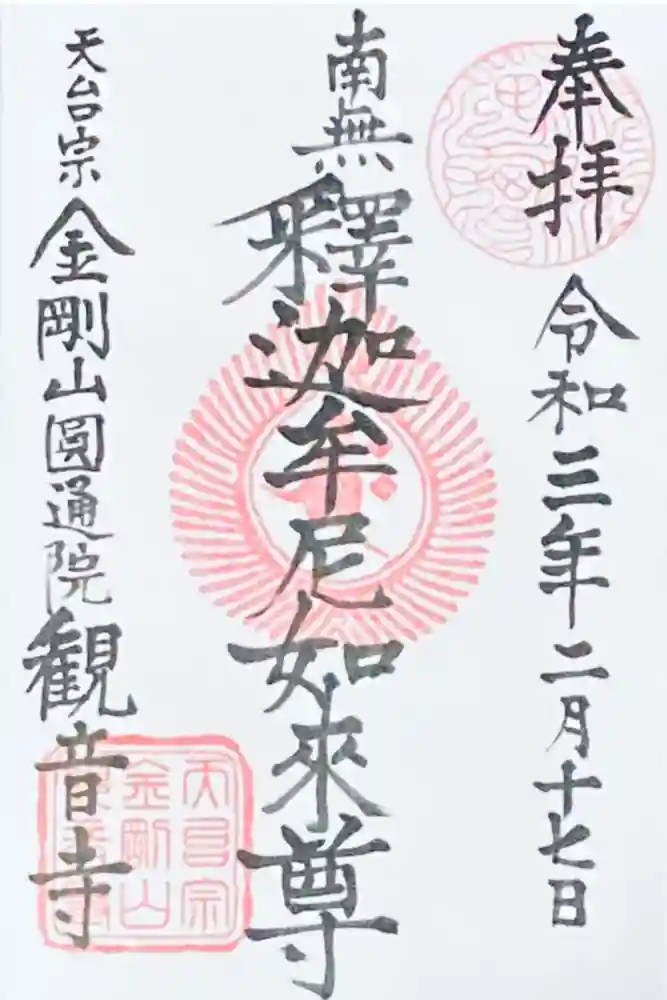 奉拝
令和三年二月十七日
南無釋迦牟尼如來尊
天台宗金剛山圓通院観音寺
天台宗
金剛山